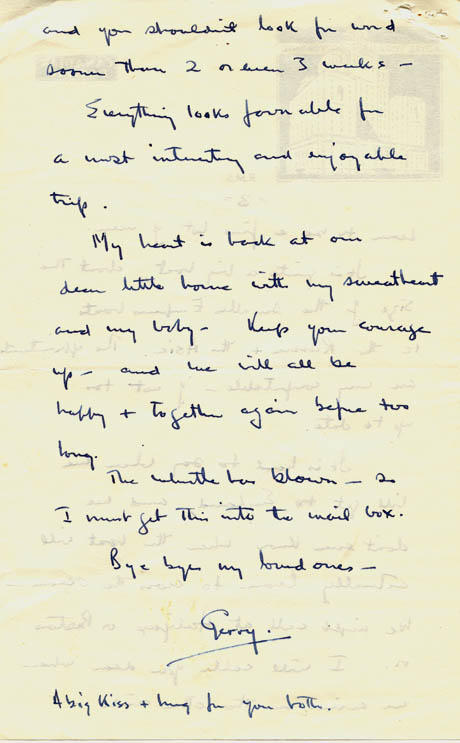 and you shouldn't look for word
sooner than 2 or even 3 weeks –
Everything looks favorable for
a most interesting and enjoyable
trip.
My heart is back at our
dear little home with my sweetheart
and my baby – Keep your courage
up – and we will all be
happy + together again before too
long.
The whistle has blown – so
I must get this into the mail box.
Bye byes my loved ones –
Gerry.
A big kiss + hug for you both.